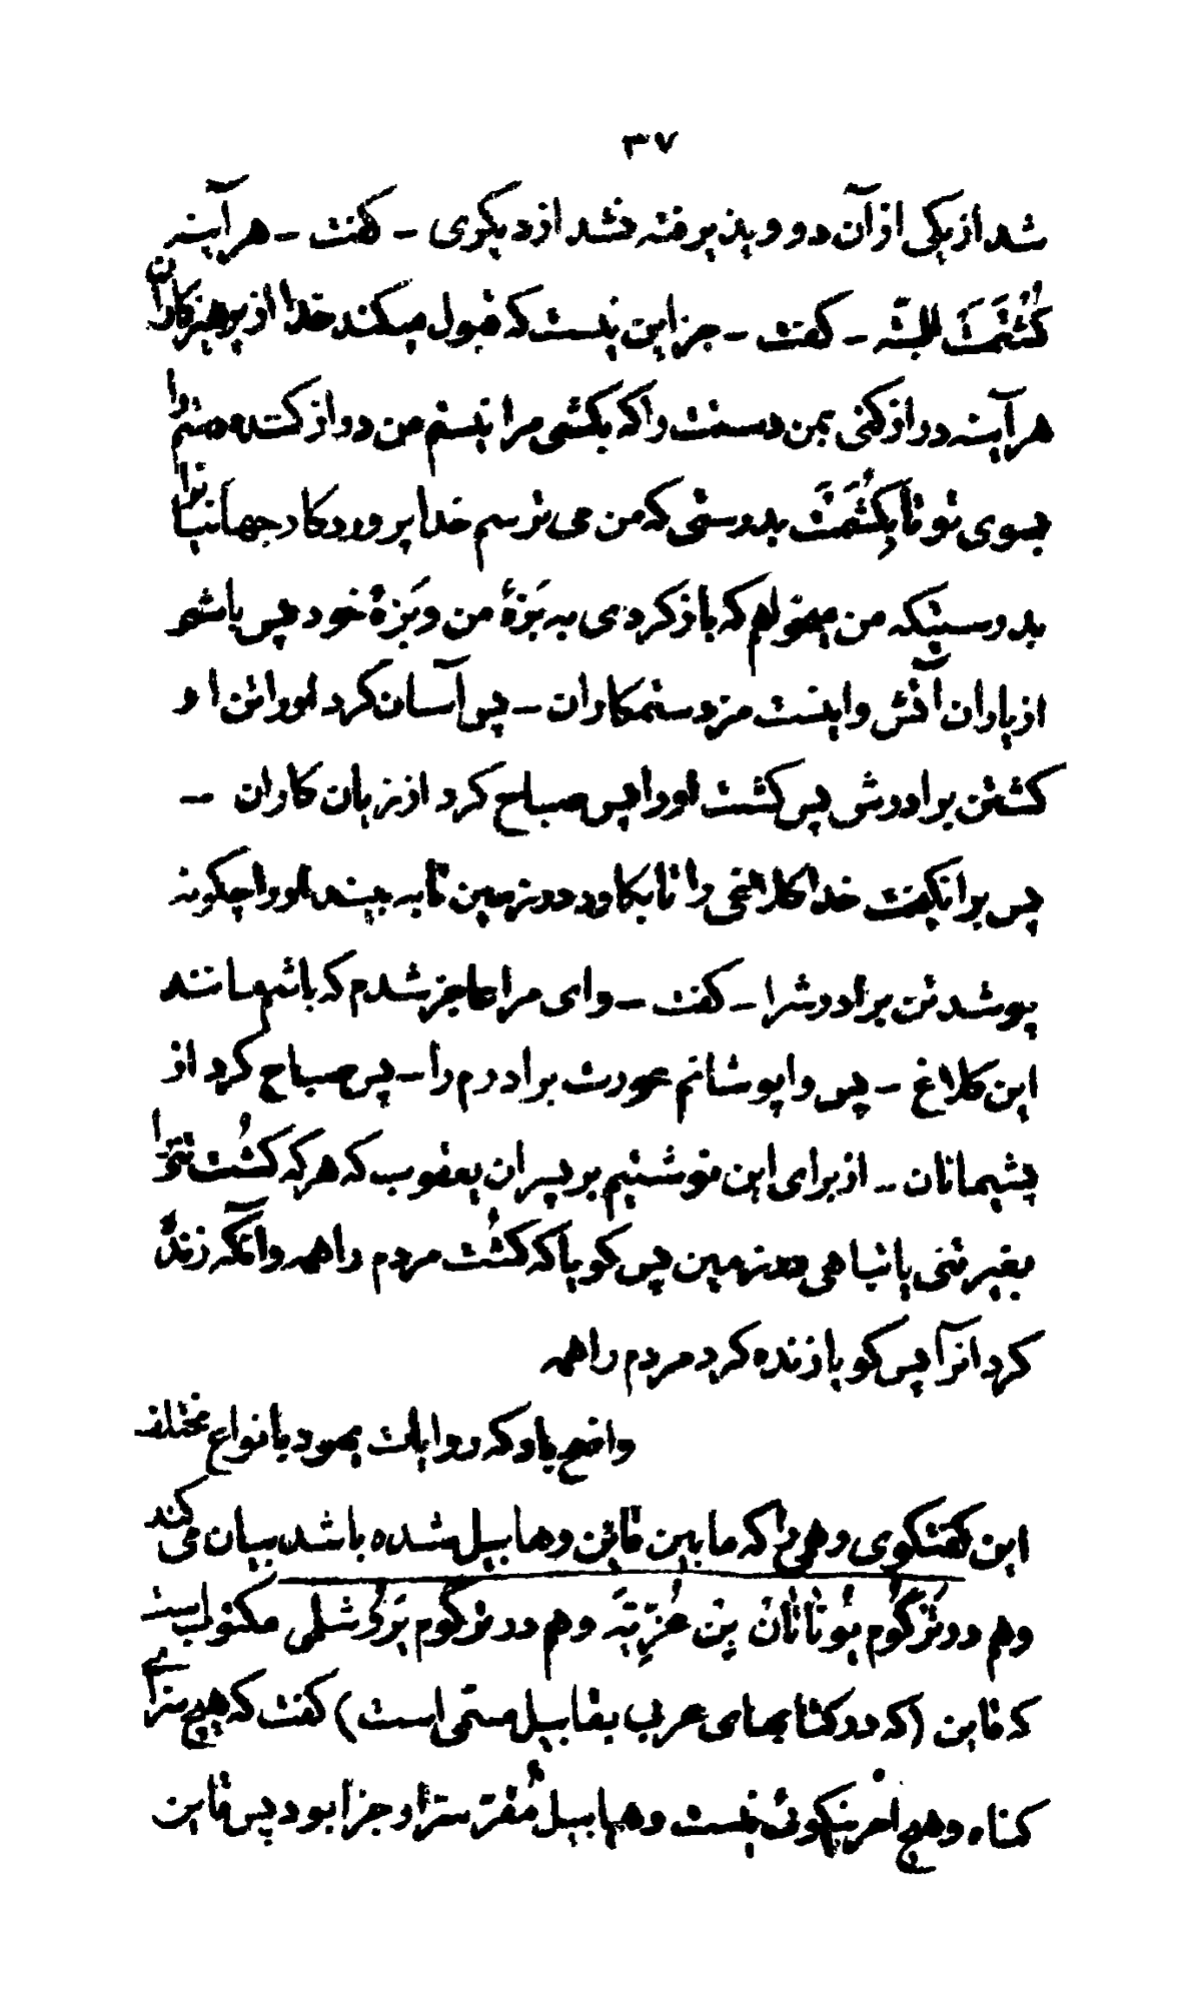 ۳۷
شد از یکی از آن دو و پذیرفته نشد از دیگری - گفت - هر آینه
کُشَمَتْ البتّه - گفت - جز این نیست که قبول میکند خدا از پرهیزکاران
هر آینه دراز کنی بمن دستت را که بکشی مرا نیستم من دراز کننده دستم را
بسوی تو تا بِکُشَمَت بدرستی که من می ترسم خدا پروردکار جهانیانرا
بدرستیکه من میخواهم که باز کردی به بَزَهٔ من و بَزَهٔ خود پس باشی
از یاران آتش و اینست مزد ستمکاران - پس آسان کرد اورا تن او
کشتن برادرش پس کشت اورا پس صباح کرد از زیان کاران -
پس برانکیخت خدا کلاغی را تا بکاود در زمین تا به بیند اورا چکونه
پوشد تن برادرشرا - گفت - وای مرا عاجز شدم که باشم مانند
این کلاغ - پس وا پوشانم عورت برادرم را - پس صباح کرد از
پشیمانان - از برای این نوشتیم بر پسران یعقوب که هر که کُشت تنیرا
بغیر تنی یا تباهی در زمین پس کویا که کُشت مردم را همه و آنکه زندهٔ
کرد آنرا پس کویا زنده کرد مردم را همه
واضح باد که روایات یهود بانواع مختلفه
این گفتگوی وهمی را که ما بین قاین و هابیل شده باشد بیان می کند
وهم در تَرْگُوم یُوناتان بِن عُزِیّه وهم در ترگوم یَرُوشلمی مکتوب است
که قاین (که در کتابهای عرب بقابیل مسمّی است) گفت که هیچ سزای
کناه و هیچ اجر نیکوئی نیست و هابیل مُقرّ سزا و جزا بود پس قاین